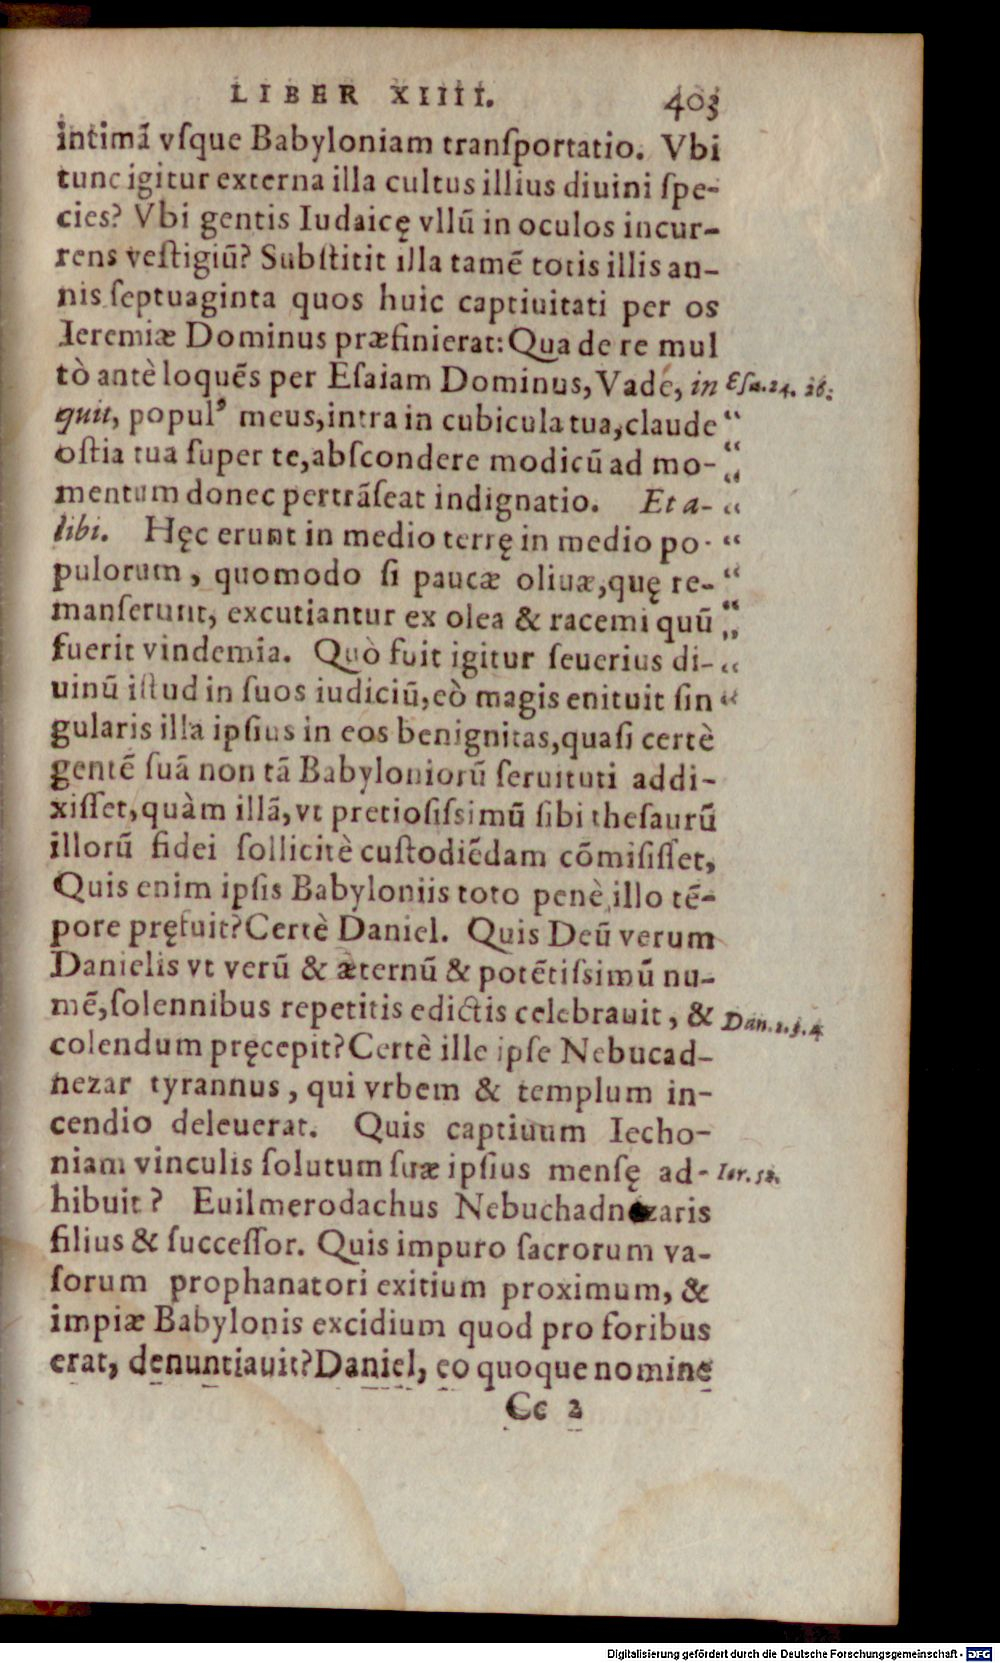 LIBER XIIII. 403
intimã vſque Babyloniam tranſportatio. Vbi
tunc igitur externa illa cultus illius diuini ſpe-
cies? Vbi gentis Iudaicę vllũ in oculos incur-
rens veſtigiũ? Subſtitit illa tamẽ totis illis an-
nis ſeptuaginta quos huic captiuitati per os
Ieremiæ Dominus præfinierat: Qua de re mul
tò antè loquẽs per Eſaiam Dominus, Vade, in Eſa.24. 26:
quit, populꝰ meus, intra in cubicula tua, claude “
oſtia tua ſuper te, abſcondere modicũ ad mo- “
mentum donec pertrãſeat indignatio. Et a- “
libi. Hęc erunt in medio terrę in medio po- “
pulorum, quomodo ſi paucæ oliuæ, quę re- “
manſerunt, excutiantur ex olea & racemi quũ “
fuerit vindemia. Quò fuit igitur ſeuerius di- “
uinũ iſtud in ſuos iudiciũ, eò magis enituit ſin “
gularis illa ipſius in eos benignitas, quaſi certè
gentẽ ſuã non tã Babyloniorũ ſeruituti addi-
xiſſet, quàm illã, vt pretioſiſsimũ ſibi theſaurũ
illorũ fidei ſollicitè cuſtodiẽdam cõmiſiſſet,
Quis enim ipſis Babyloniis toto penè illo tẽ-
pore pręfuit? Certè Daniel. Quis Deũ verum
Danielis vt verũ & æternũ & potẽtiſsimũ nu-
mẽ, ſolennibus repetitis edictis celebrauit, & Dan.2.3.4
colendum pręcepit? Certè ille ipſe Nebucad-
nezar tyrannus, qui vrbem & templum in-
cendio deleuerat. Quis captiuum Iecho-
niam vinculis ſolutum ſuæ ipſius menſę ad- Ier.52.
hibuit? Euilmerodachus Nebuchadnezaris
filius & ſucceſſor. Quis impuro ſacrorum va-
ſorum prophanatori exitium proximum, &
impiæ Babylonis excidium quod pro foribus
erat, denuntiauit? Daniel, eo quoque nomine
Cc 2
Digitalisierung gefördert durch die Deutsche Forschungsgemeinschaft - DFG